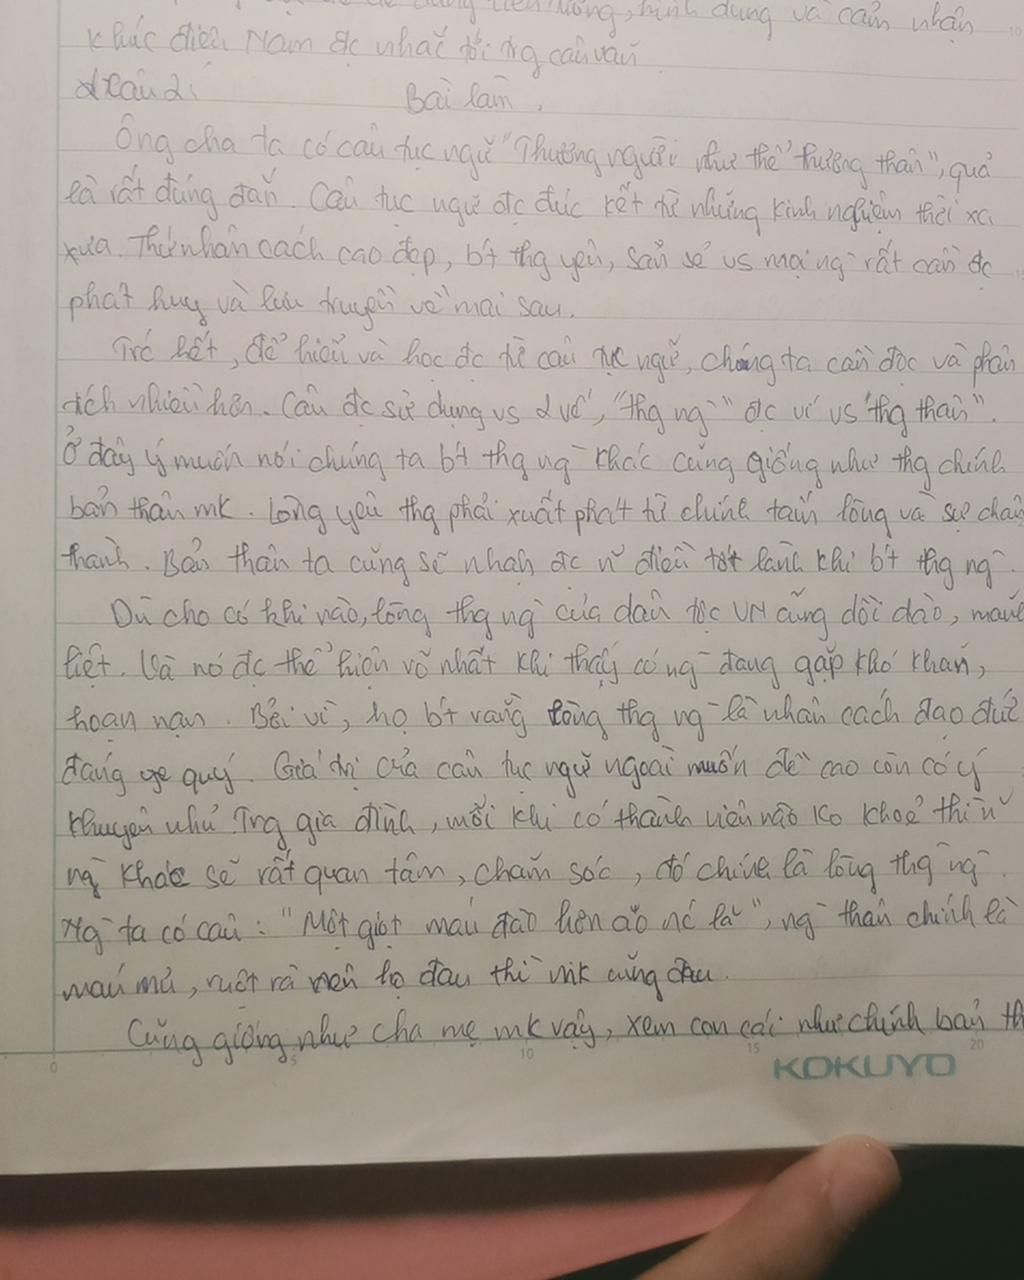 dung liên tưởng, hình dung và cảm nhận
khúc điệu Nam đc nhắc tới trg câu văn
Câu 2: Bài làm.
Ông cha ta có câu tục ngữ "Thương người như thể thương thân", quả
là rất đúng đắn. Câu tục ngữ đc đúc kết từ những kinh nghiệm thời xa
xưa. Thứ nhân cách cao đẹp, bt thg yêu, san sẻ vs mọi ng` rất cần đc
phát huy và lưu truyền về mai sau.
Trc hết, để hiểu và học đc từ câu tục ngữ, chúng ta cần đọc và phân
tích nhiều hơn. Câu đc sử dụng vs 2 vế, "thg ng`" đc ví vs "thg thân".
Ở đây ý muốn nói chúng ta bt thg ng` khác cũng giống như thg chính
bản thân mk. Lòng yêu thg phải xuất phát từ chính tấm lòng và sự chân
thành. Bản thân ta cũng sẽ nhận đc n~ điều tốt lành khi bt thg ng`.
Dù cho có khi nào, lòng thg ng` của dân tộc VN cũng dồi dào, mãnh
liệt. Và nó đc thể hiện rõ nhất khi thấy có ng` đang gặp khó khăn,
hoạn nạn. Bởi vì, họ bt rằng lòng thg ng` là nhân cách đạo đức
đáng qúy. Giá trị của câu tục ngữ ngoài muốn đề cao còn có ý
khuyên nhủ. Trg gia đình, mỗi khi có thành viên nào ko khoẻ thì n~
ng` khác sẽ rất quan tâm, chăm sóc, đó chính là lòng thg ng`.
Ng` ta có câu: "Một giọt máu đào hơn ao nc lã", ng` thân chính là
máu mủ, ruột rà nên họ đau thì mk cũng đau.
Cũng giống như cha mẹ mk vậy, xem con cái như chính bản th
KOKUYO
0 5 10 15 20